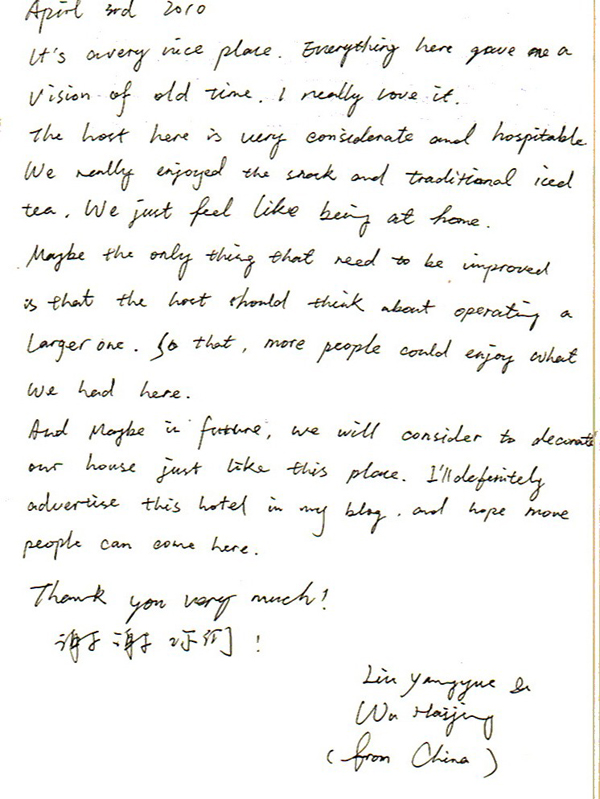 April 3rd 2010
It's a very nice place. Everything here gave me a
vision of old time. I really love it.
The host here is very considerate and hospitable
We really enjoyed the snack and traditional iced
tea. We just feel like being at home.
Maybe the only thing that need to be improved
is that the host should think about operating a
larger one. So that, more people could enjoy what
we had here.
And Maybe in future, we will consider to decorate
our house just like this place. I'll definitely
advertise this hotel in my blog. and hope more
people can come here.
Thank you very much!
谢谢你们!
Liu Yangyue &
Wu Haijing
(from China)